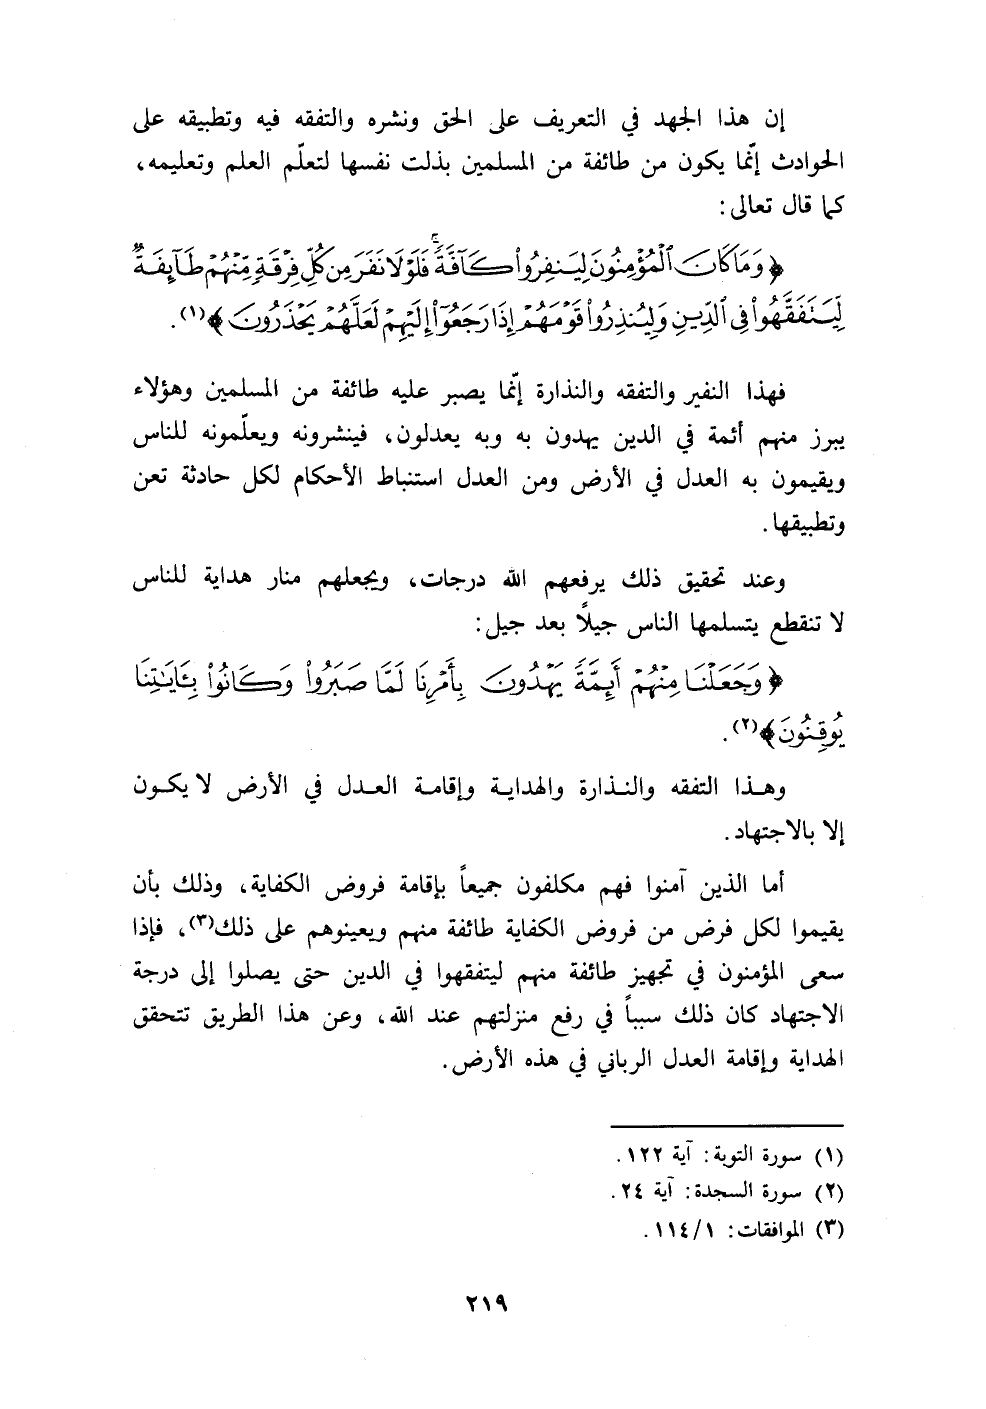 إن هذا الجهد في التعريف على الحق ونشره والتفقه فيه وتطبيقه على
الحوادث إنّما يكون من طائفة من المسلمين بذلت نفسها لتعلّم العلم وتعليمه،
كما قال تعالى:
﴿وَمَا كَانَ ٱلْمُؤْمِنُونَ لِيَنفِرُوا۟ كَآفَّةً ۚ فَلَوْلَا نَفَرَ مِن كُلِّ فِرْقَةٍ مِّنْهُمْ طَآئِفَةٌ
لِّيَتَفَقَّهُوا۟ فِى ٱلدِّينِ وَلِيُنذِرُوا۟ قَوْمَهُمْ إِذَا رَجَعُوٓا۟ إِلَيْهِمْ لَعَلَّهُمْ يَحْذَرُونَ﴾(١).
فهذا النفير والتفقه والنذارة إنّما يصبر عليه طائفة من المسلمين وهؤلاء
يبرز منهم أئمة في الدين يهدون به وبه يعدلون، فينشرونه ويعلّمونه للناس
ويقيمون به العدل في الأرض ومن العدل استنباط الأحكام لكل حادثة تعن
وتطبيقها.
وعند تحقيق ذلك يرفعهم الله درجات، ويجعلهم منار هداية للناس
لا تنقطع يتسلمها الناس جيلاً بعد جيل:
﴿وَجَعَلْنَا مِنْهُمْ أَئِمَّةً يَهْدُونَ بِأَمْرِنَا لَمَّا صَبَرُوا۟ وَكَانُوا۟ بِـَٔايَـٰتِنَا
يُوقِنُونَ﴾(٢).
وهـذا التفقه والنـذارة والهدايـة وإقامـة العـدل في الأرض لا يكـون
إلا بالاجتهاد.
أما الذين آمنوا فهم مكلفون جميعاً بإقامة فروض الكفاية، وذلك بأن
يقيموا لكل فرض من فروض الكفاية طائفة منهم ويعينوهم على ذلك(٣)، فإذا
سعى المؤمنون في تجهيز طائفة منهم ليتفقهوا في الدين حتى يصلوا إلى درجة
الاجتهاد كان ذلك سبباً في رفع منزلتهم عند الله، وعن هذا الطريق تتحقق
الهداية وإقامة العدل الرباني في هذه الأرض.
(١) سورة التوبة: آية ١٢٢.
(٢) سورة السجدة: آية ٢٤.
(٣) الموافقات: ١١٤/١.
٢١٩